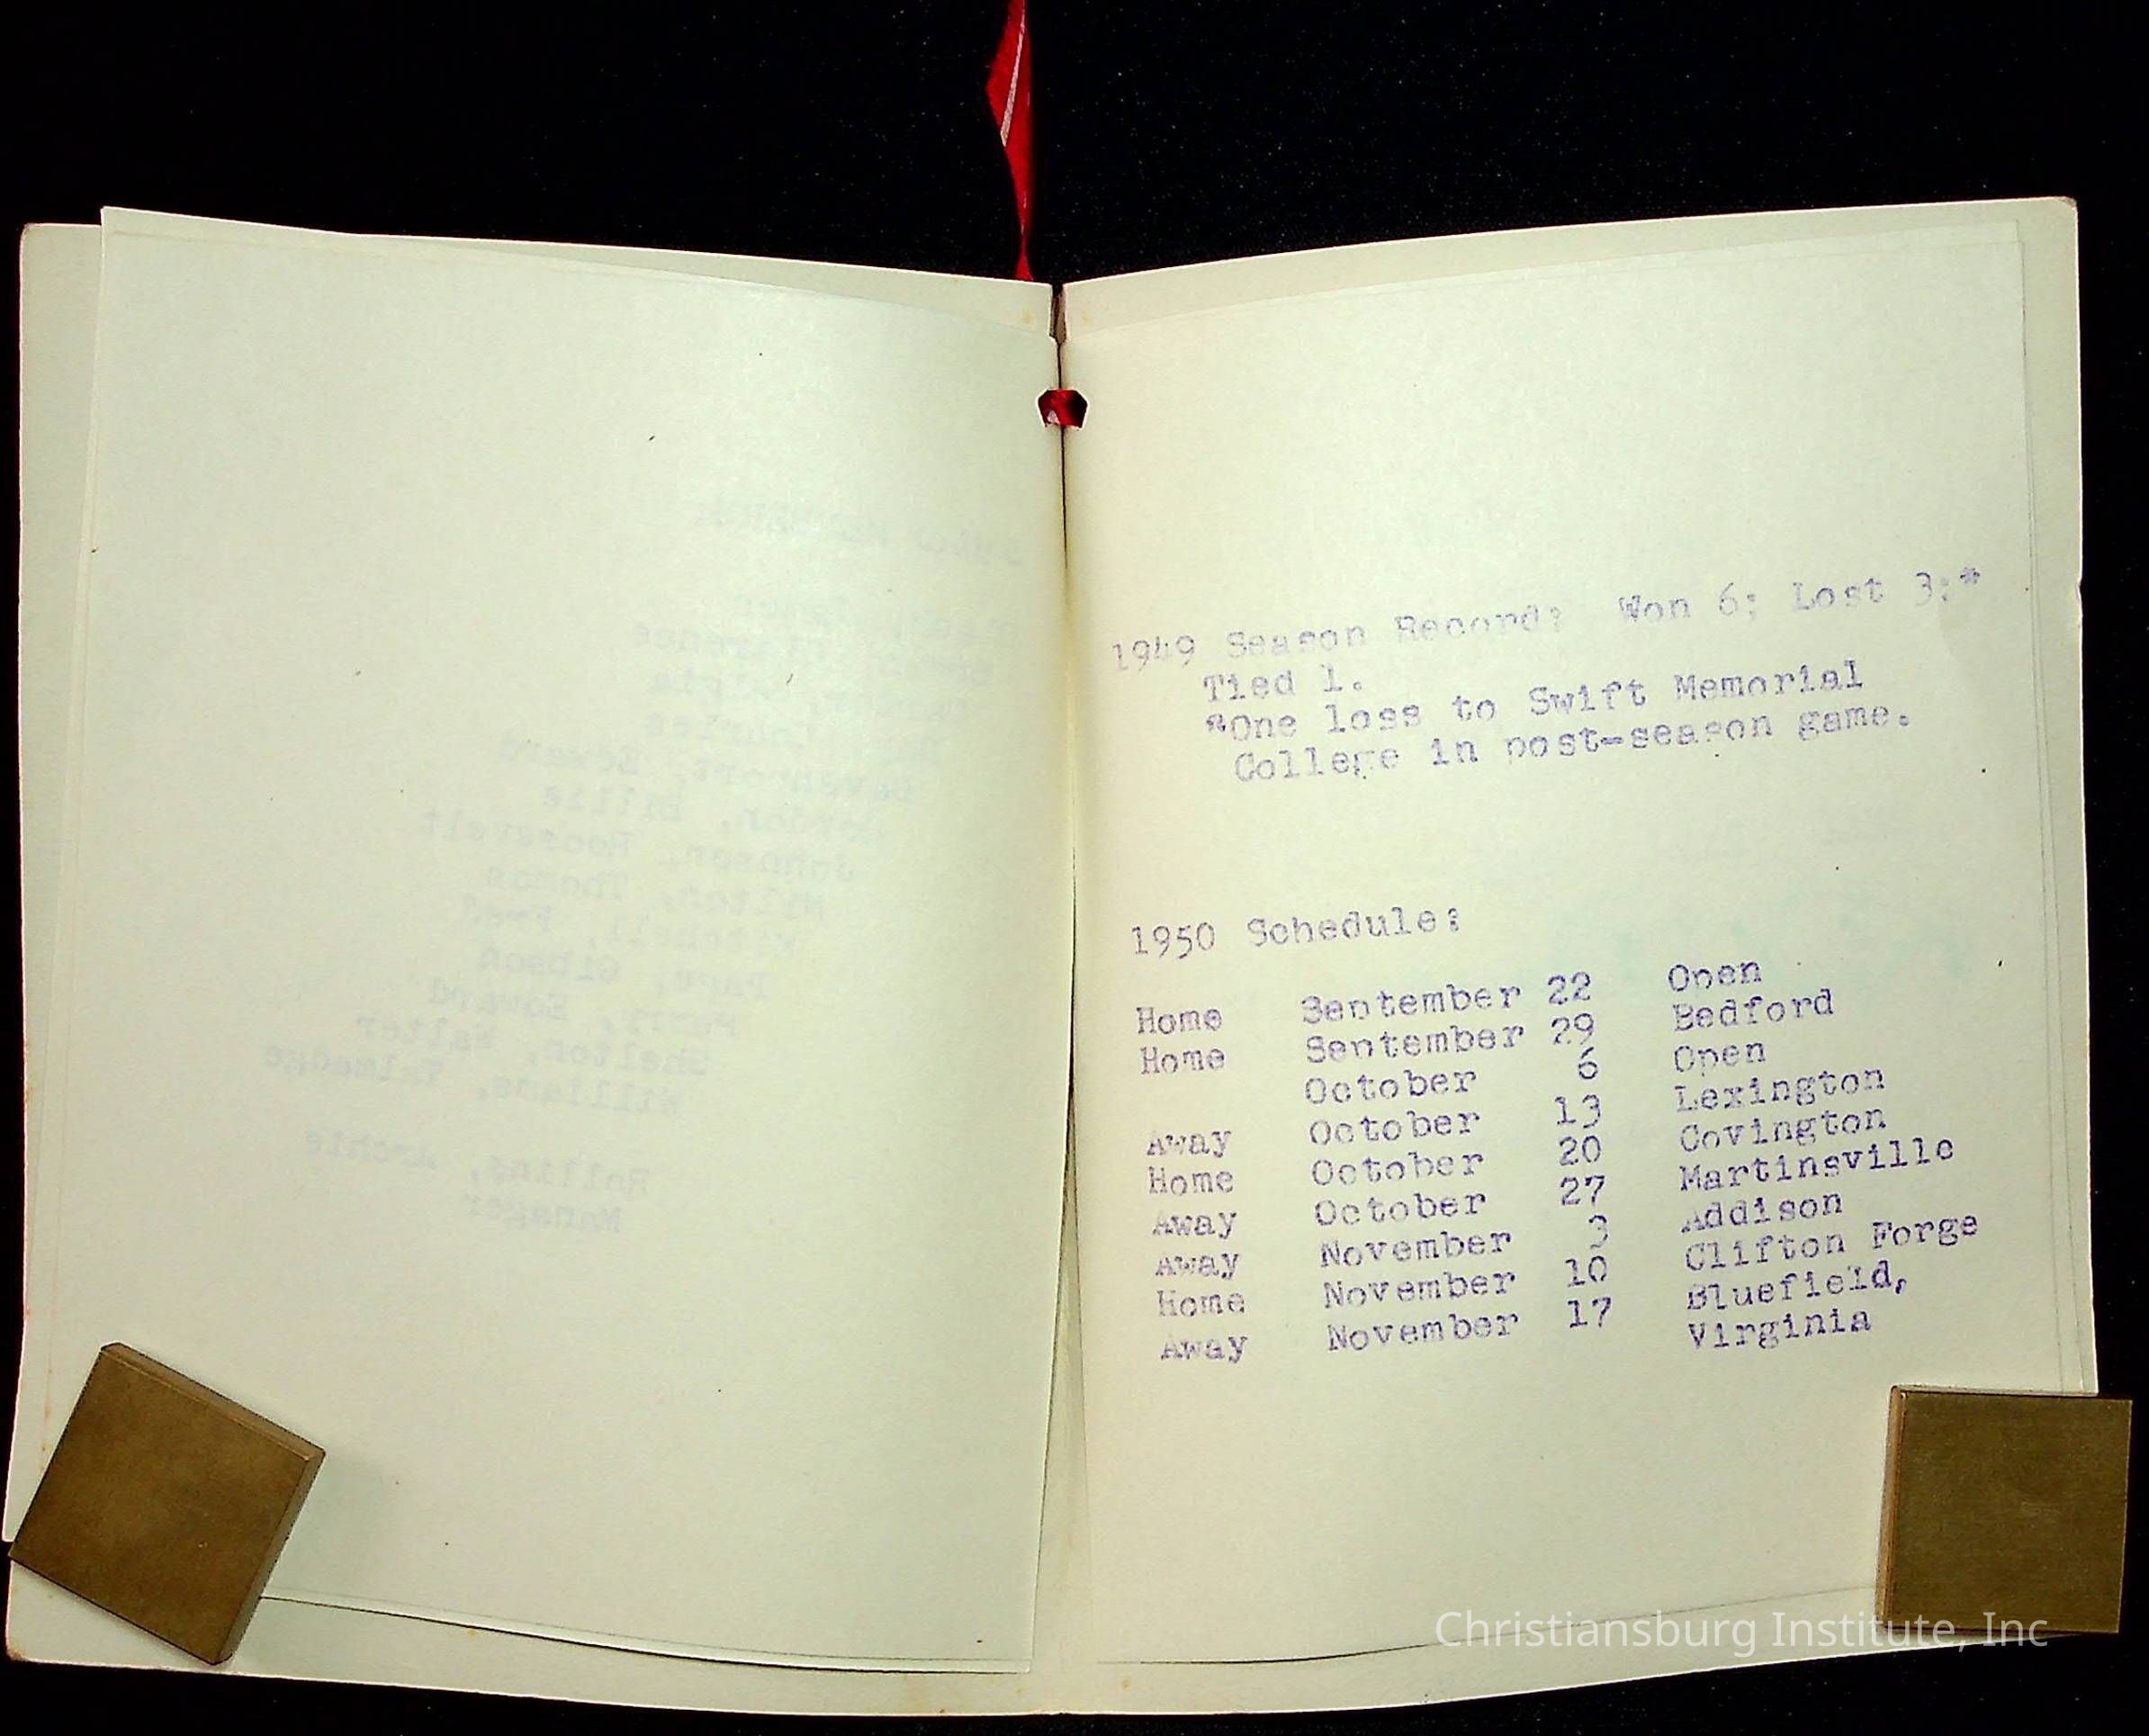 1949 Season Record: Won 6; Lost 3;*
Tied 1.
*One loss to Swift Memorial
College in post-season game.
1950 Schedule:
Home September 22 Open
Home September 29 Bedford
October 6 Open
Away October 13 Lexington
Home October 20 Covington
Away October 27 Martinsville
Away November 3 Addison
Home November 10 Clifton Forge
Away November 17 Bluefield,
Virginia
Christiansburg Institute, Inc